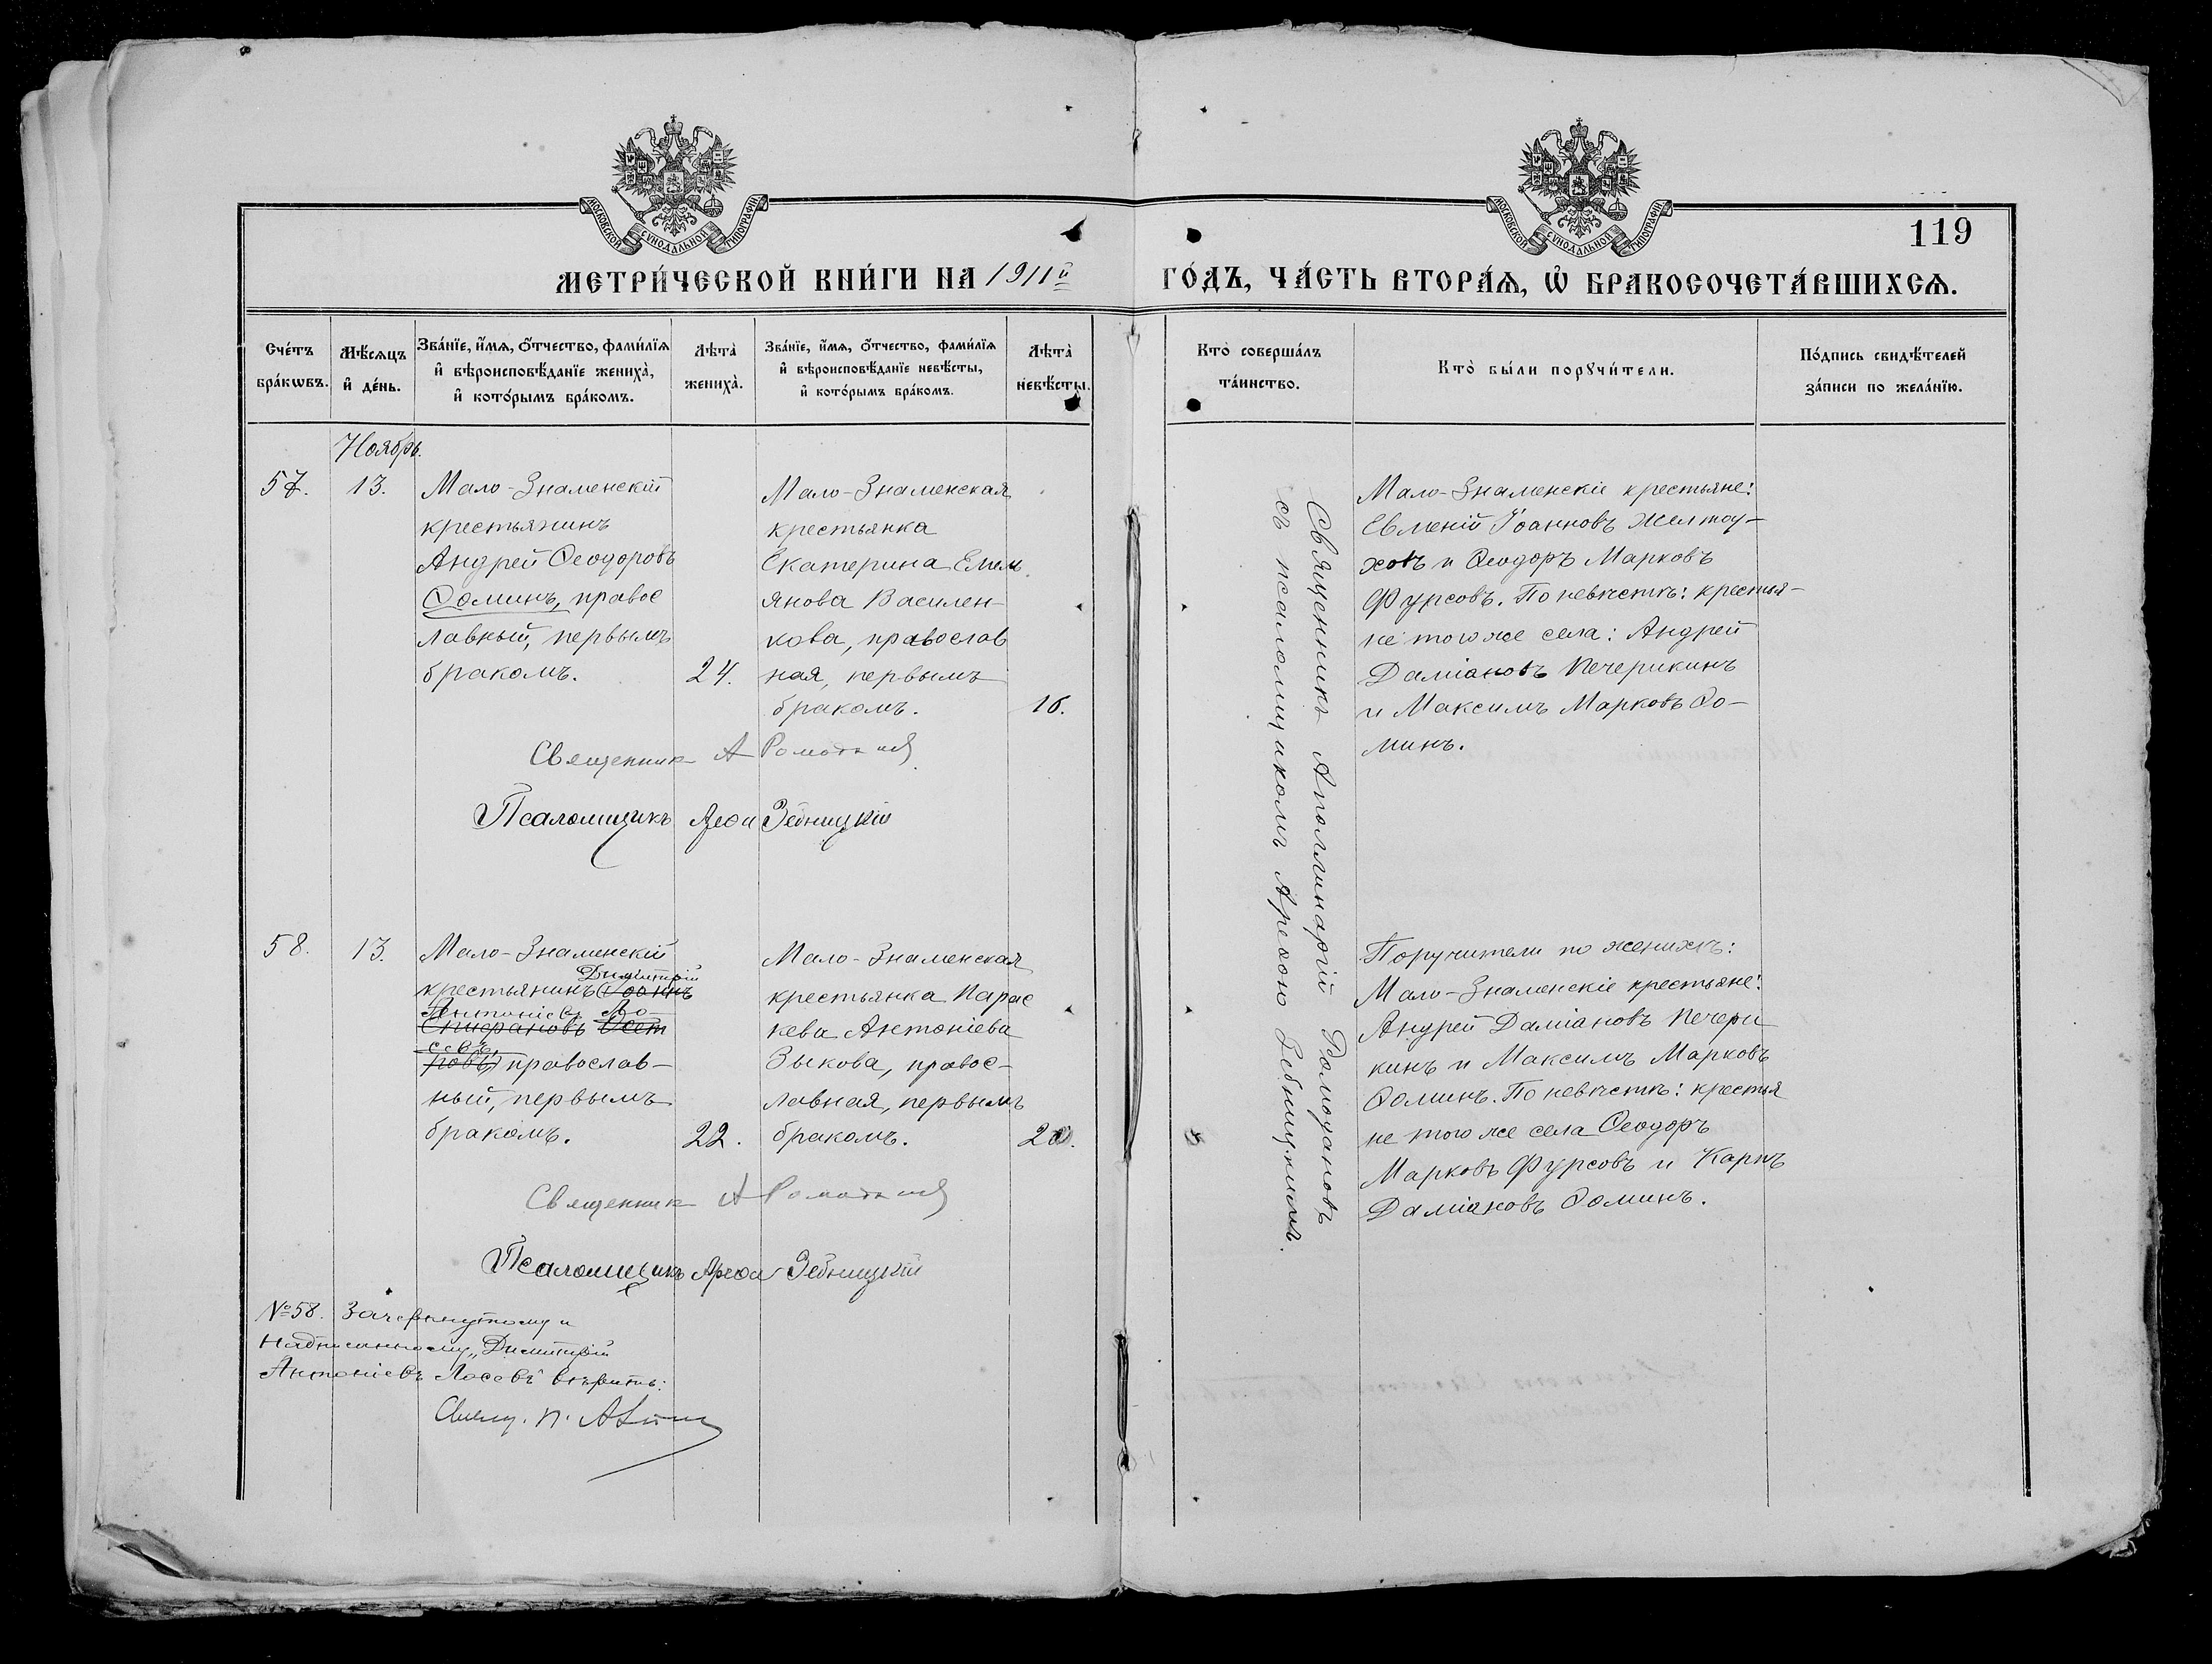 МОСКОВСКОЙ СѴНОДАЛЬНОЙ ТИПОГРАФІИ
МОСКОВСКОЙ СѴНОДАЛЬНОЙ ТИПОГРАФІИ
119
МЕТРИ́ЧЕСКОЙ КНИ́ГИ НА 1911й
ГО́ДЪ, ЧА́СТЬ ВТОРА́Ѧ, Ѽ БРАКОСОЧЕТА́ВШИХСѦ.
Сче́тъ
бра́кѡвъ.
Мѣ́сѧцъ
и҆ де́нь.
Зва́нїе, и҆́мѧ, ѻ҆́тчество, фами́лїѧ
и҆ вѣроисповѣ́данїе жениха̀,
и҆ кото́рымъ бра́комъ.
Лѣта̀
жениха̀.
Зва́нїе, и҆́мѧ, ѻ҆́тчество, фами́лїѧ
и҆ вѣроисповѣ́данїе невѣ́сты,
и҆ кото́рымъ бра́комъ.
Лѣта̀
невѣ́сты.
Кто̀ соверша́лъ
та́инство.
Кто̀ бы́ли порꙋчи́тели.
По́дпись свидѣ́телей
за́писи по жела́нїю.
Ноябрь.
57.
13.
Мало-Знаменскій
крестьянинъ
Андрей Ѳеодоровъ
Ѳоминъ, правос
лавный, первымъ
бракомъ.
24.
Мало-Знаменская
крестьянка
Екатерина Емель
янова Василен-
кова, православ
ная, первымъ
бракомъ.
16.
Священникъ Аполлинарій Ромодановъ
съ псаломщикомъ Ареѳою Зебницкимъ.
Мало-Знаменскіе крестьяне:
Евменій Іоанновъ Желтоу-
ховъ и Ѳеодоръ Марковъ
Фурсовъ. По невѣстѣ: крестья-
не того же села: Андрей
Даміановъ Печерикинъ
и Максимъ Марковъ Ѳо-
минъ.
Священник А Ромоданов
Псаломщикъ Ареѳа Зебницкій
58.
13.
Мало-Знаменскій
Димитрій
крестьянинъ Іоаннъ
Антоніевъ Ло-
Епифановъ Осет
севъ,
ровъ, православ-
ный, первымъ
бракомъ.
22.
Мало-Знаменская
крестьянка Парас
кева Антоніева
Зыкова, правос-
лавная, первымъ
бракомъ.
20.
Поручители по женихѣ:
Мало-Знаменскіе крестьяне:
Андрей Даміановъ Печери
кинъ и Максимъ Марковъ
Ѳоминъ. По невѣстѣ: крестья
не того же села Ѳеодоръ
Марковъ Фурсовъ и Карпъ
Даміановъ Ѳоминъ.
Священник А Ромоданов
Псаломщикъ Ареѳа Зебницкій
№58. Зачеркнутому и
надписанному „Димитрій
Антоніевъ Лосевъ" вѣрить:
Свящ. П.